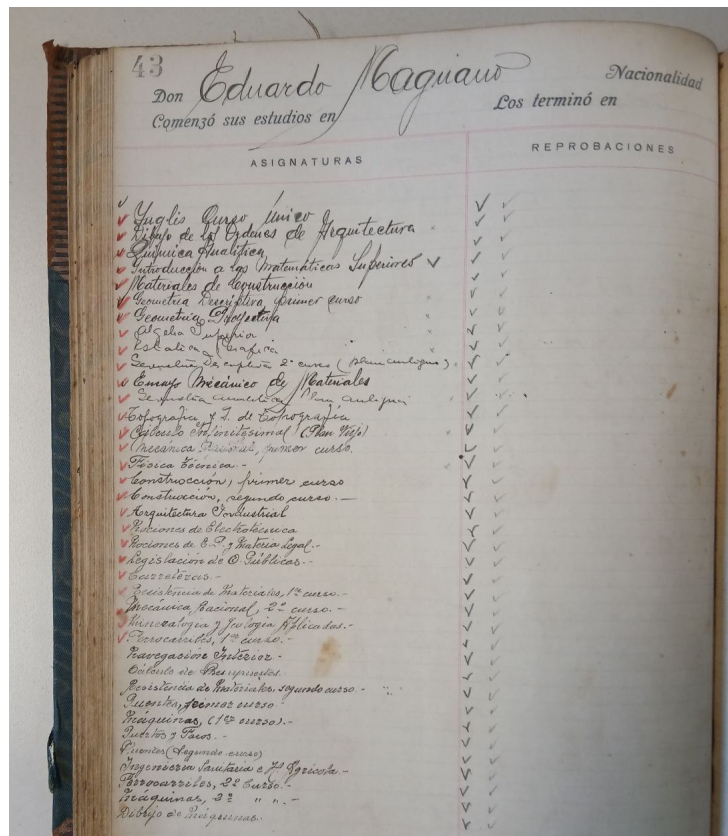 43
Don Eduardo Magnano Nacionalidad
Comenzó sus estudios en Los terminó en
ASIGNATURAS REPROBACIONES
Inglis Curso único
Dibujo de los Ordenes de Arquitectura
Química Analítica
Introducción a las Matemáticas Superiores
Materiales de Construcción
Geometría Descriptiva, primer curso
Geometría Proyectiva
Algebra Superior
Estática Gráfica
Descriptiva 2º curso (Plan antiguo)
Ensayo Mecánico de Materiales
Plan antiguo
Topografía y D. de Topografía
Cálculo Infinitesimal (Plan Viejo)
Mecánica Racional, primer curso.
Física Técnica.-
Construcción, primer curso
Construcción, segundo curso.-
Arquitectura Industrial
Nociones de Electrotécnica
Nociones de E. P. y Materia Legal.-
Legislación de O. Públicas.-
Carreteras.-
Resistencia de Materiales, 1er curso.-
Mecánica Racional, 2º curso.-
Mineralogía y Geología Aplicadas.-
Ferrocarriles, 1er curso.-
Navegación Interior.-
Cálculo de
Resistencia de Materiales, segundo curso.-
Puentes, primer curso
Máquinas, (1er curso).-
Puertos y Faros.-
Puentes (segundo curso)
Ingeniería Sanitaria e Ja Agrícola.-
Ferrocarriles, 2º Curso.-
Máquinas, 2º " " .-
Dibujo de Máquinas.